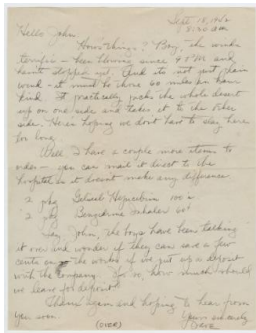 Sept. 18, 1942
8:30 am
Hello John,
How's things? Boy, the winds
terrific - been blowing since 9 PM and
hasn't stopped yet. And its not just plain
wind - it must be those 60 miles per hour
kind. It practically picks the whole desert
up on one side and takes it to the other
side. Here's hoping we don't have to stay here
for long.
Well I have a couple more items to
order - you can mail it direct to the
hospital as it doesn't make any difference.
2 pkg
2 pkg Benzedrine Inhaler 60¢
Say John, the boys have been talking
it over and wonder if they can save a few
cents on the works if we put up a deposit
with the Company. If so, how much should
we leave for deposit?
Thanks again and hoping to hear from
you soon.
Yours sincerely